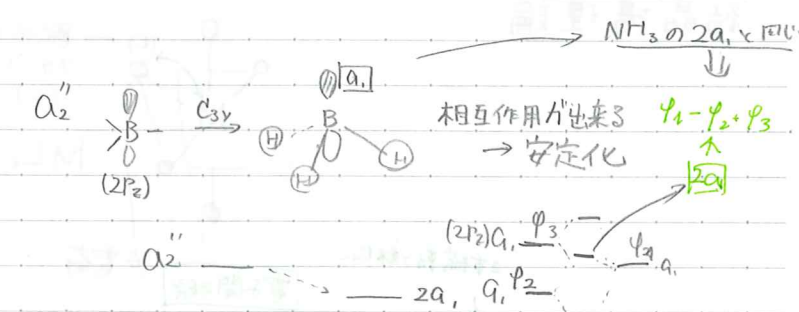 NH₃の2a₁と同じ
⇓
a₂''
B
(2P_z)
C₃ᵥ
→
a₁
B
H
H
H
相互作用が出来る
→ 安定化
φ₁-φ₂+φ₃
↑
2a₁
a₂''
2a₁
(2P_z)a₁ φ₃
a₁ φ₂
a₁